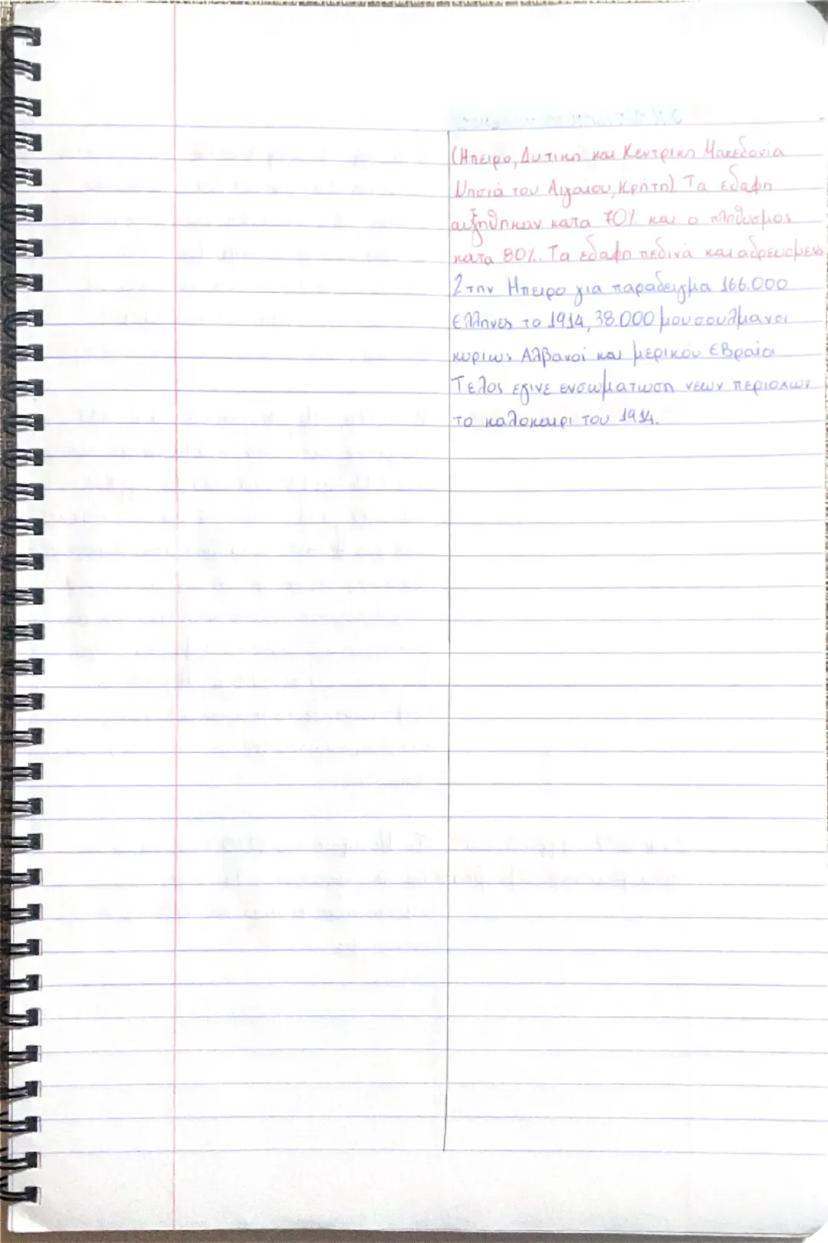 (Ηπειρο, Δυτικη και Κεντρικη Μακεδονία
Νησιά του Αιγαιου, Κρήτη) Τα εδαφη
αυξηθηκαν κατα 70% και ο πληθυσμος
κατα 80%. Τα εδαφη πεδινά και αδρευομενα
Στην Ηπειρο για παραδειγμα 166.000
Ελληνες το 1914, 38.000 μουσουλμανοι
κυριως Αλβανοί και μερικου Εβραίοι
Τελος εγινε ενσωματωση νεων περιοχων
το καλοκαιρι του 1914.